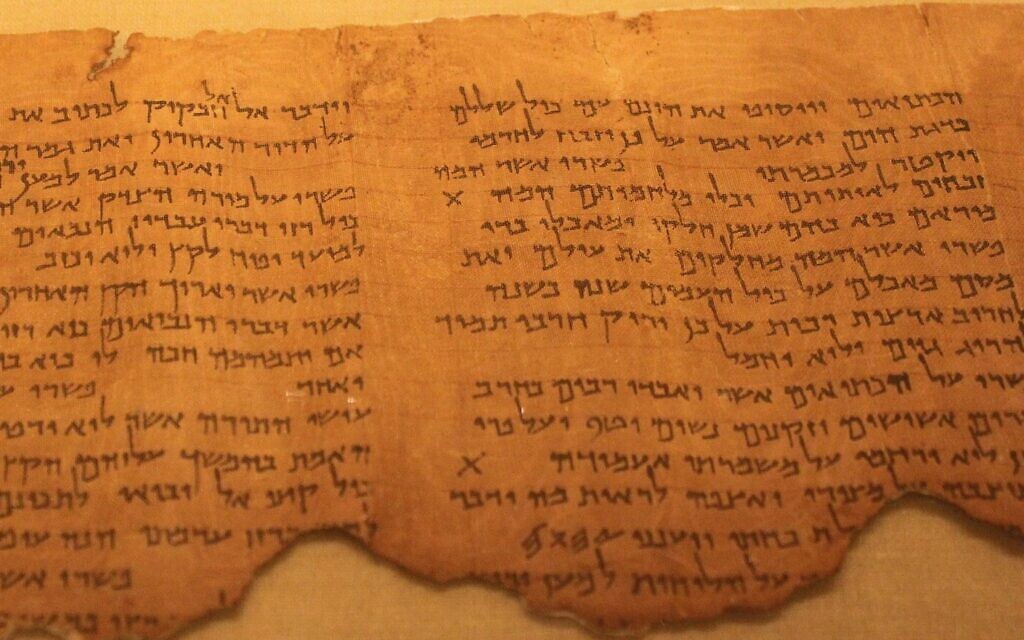 הכתיאים ויוסיפו את הונם עם כול שללם
כדגת הים ואשר אמר על כן יזבח לחרמו
ויקטר למכמרתו פשרו אשר המה
זבחים לאותותם וכלי מלחמותם המה X
מוראם כיא בהם שמן חלקו ומאכלו ברי
פשרו אשר המה מחלקים את עולם ואת
מסם מאכלם על כול העמים שנה בשנה
לחריב ארצות רבות על כן יריק חרבו תמיד
להרוג גוים ולוא יחמל
על הכתיאים אשר יאבדו רבים בחרב
אשישים וזקנים נשים וטף ועל פרי
לוא ירחמו על משמרתי אעמודה X
על מצורי ואצפה לראות מה ידבר
ויענני 𐤉𐤄𐤅𐤄
על הלוחות למען
וידבר אל אל חבקוק לכתוב את
על הדור האחרון ואת גמר
ואשר אמר למען
פשרו על מורה הצדק אשר
כול רזי דברי עבדיו הנבאים
למועד יפיח לקץ ולוא יכזב
פשרו אשר יארוך הקץ האחרון
אשר דברו הנביאים כיא רזי
אם יתמהמה חכה לו כיא בוא
יאחר פשרו
עושי התורה אשר לוא
האמת בהמשך עליהם הקץ
כול קיצי אל יבואו לתכונם
ברזי ערמתו הנה
פשרו